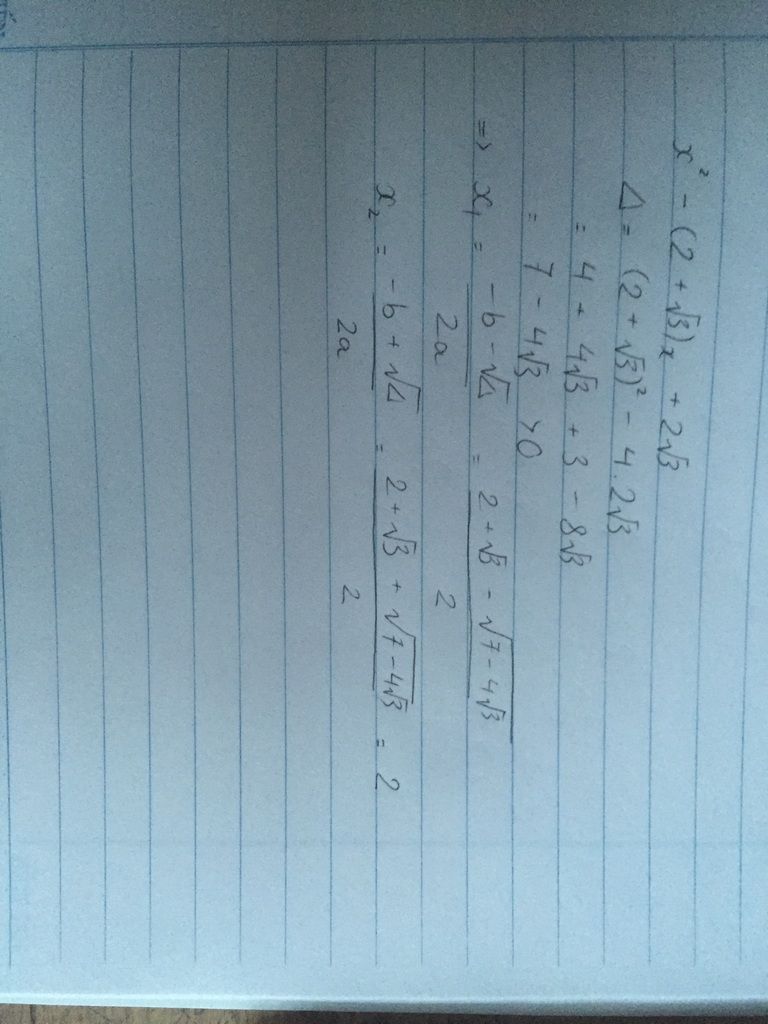 x² - (2 + √3)x + 2√3
Δ = (2 + √3)² - 4.2√3
= 4 + 4√3 + 3 - 8√3
= 7 - 4√3 > 0
=> x₁ = (-b - √Δ)/2a = (2 + √3 - √(7 - 4√3))/2
x₂ = (-b + √Δ)/2a = (2 + √3 + √(7 - 4√3))/2 = 2